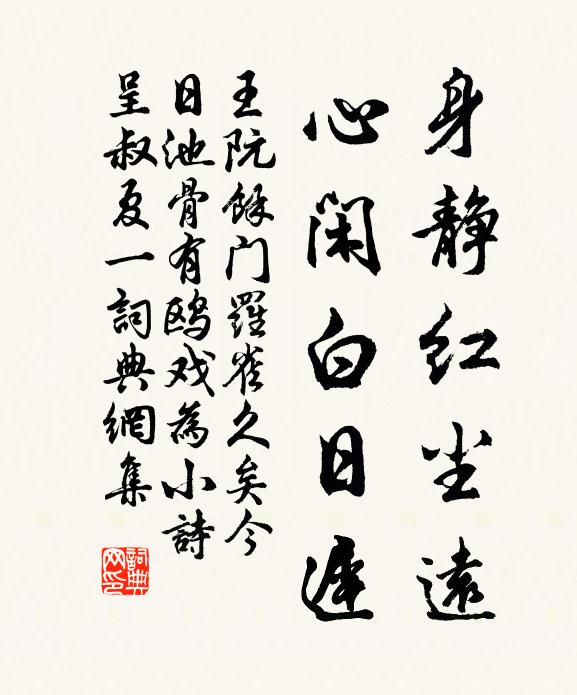 身静红尘远
心闲白日遲
王阮餘门羅雀久矣今
日池骨有鸥戏為小詩
呈叔夏一詞典網集
詞典网印